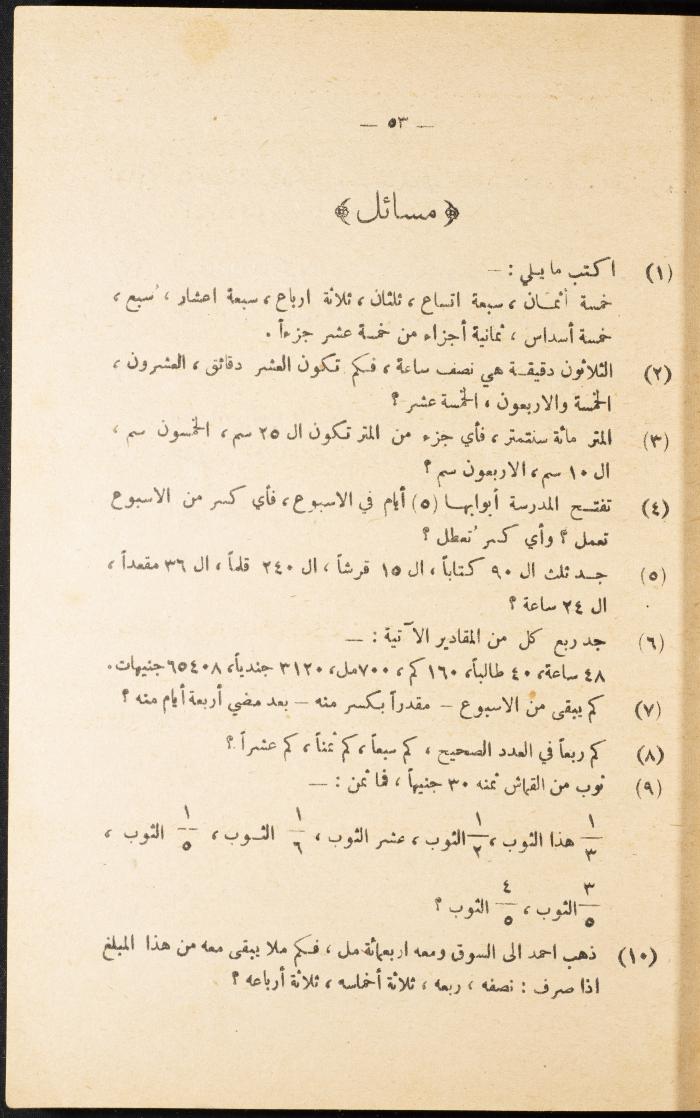 — ٥٣ —
﴿ مسائل ﴾
(١) اكتب ما يلي : —
خمسة أثمان ، سبعة اتساع ، ثلثان ، ثلاثة ارباع ، سبعة اعشار ، سُبع ،
خمسة أسداس ، ثمانية أجزاء من خمسة عشر جزءاً .
(٢) الثلاثون دقيقة هي نصف ساعة ، فكم تكون العشر دقائق ، العشرون ،
الخمسة والاربعون ، الخمسة عشر ؟
(٣) المتر مائة سنتمتر ، فأي جزء من المتر تكون ال ٢٥ سم ، الخمسون سم ،
ال ١٠ سم ، الاربعون سم ؟
(٤) تفتح المدرسة أبوابها (٥) أيام في الاسبوع ، فأي كسر من الاسبوع
تعمل ؟ وأي كسر تُعطل ؟
(٥) جد ثلث ال ٩٠ كتاباً ، ال ١٥ قرشاً ، ال ٢٤٠ قلماً ، ال ٣٦ مقعداً ،
ال ٢٤ ساعة ؟
(٦) جد ربع كل من المقادير الآتية : —
٤٨ ساعة، ٤٠ طالباً، ١٦٠ كم ، ٧٠٠مل، ٣١٢٠ جندياً، ٦٥٤٠٨جنيهات.
(٧) كم يبقى من الاسبوع – مقدراً بكسر منه – بعد مضي أربعة أيام منه ؟
(٨) كم ربعاً في العدد الصحيح ، كم سبعاً ، كم ثمناً ، كم عشراً ؟
(٩) ثوب من القماش ثمنه ٣٠ جنيهاً ، فما ثمن : —
١/٣ هذا الثوب ، ١/٢ الثوب ، عشر الثوب ، ١/٦ الثوب ، ١/٥ الثوب ،
٣/٥ الثوب ، ٤/٥ الثوب ؟
(١٠) ذهب احمد الى السوق ومعه اربعمائة مل ، فكم ملا يبقى معه من هذا المبلغ
اذا صرف : نصفه ، ربعه ، ثلاثة أخماسه ، ثلاثة أرباعه ؟